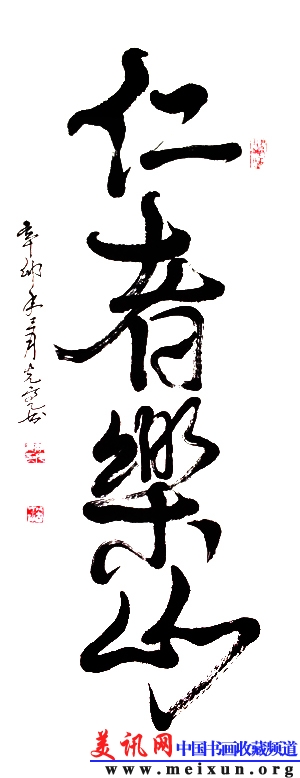 仁者樂山
辛卯年三月
美讯网 中国书画收藏频道
www.meixun.org